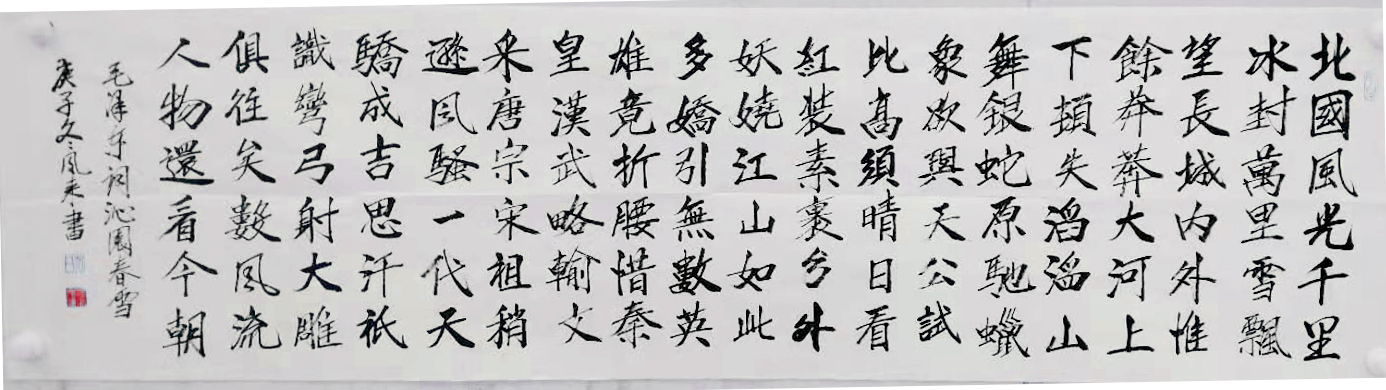 北國風光千里
冰封萬里雪飄
望長城内外惟
餘莽莽大河上
下頓失滔滔山
舞銀蛇原馳蠟
象欲與天公試
比髙須晴日看
紅裝素裹分外
妖嬈江山如此
多嬌引無數英
雄竟折腰惜秦
皇漢武略輸文
采唐宗宋祖稍
遜風騷一代天
驕成吉思汗祇
識彎弓射大雕
俱往矣數風流
人物還看今朝
毛澤东詞沁園春雪
庚子冬風来書